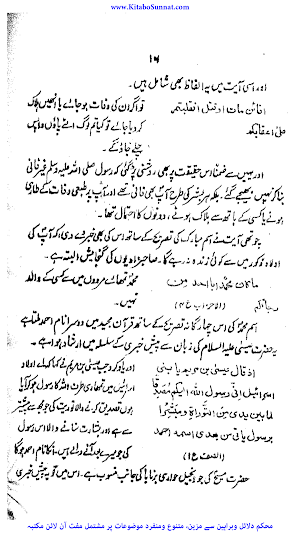 www.KitaboSunnat.com
۱۶
اور اسی آیت میں یہ الفاظ بھی شامل ہیں۔
افائن مات اوقتل انقلبتم تو اگر ان کی وفات ہو جائے یا انھیں ہلاک
علیٰ اعقابکم کر دیا جائے تو کیا تم لوگ الٹے پاؤں واپس
چلے جاؤ گے۔
اور یہیں سے ضمناً اس حقیقت پر بھی روشنی پڑ گئی کہ رسول صلی اللہ علیہ وسلم غیر فانی
بنا کر نہیں بھیجے گئے، بلکہ ہر بشر کی طرح آپ بھی فانی تھے اور آپ پر طبعی وفات کے طاری
ہونے یا کسی کے ہاتھ سے ہلاک ہونے، دونوں کا احتمال تھا۔
چوتھی آیت نے اسم مبارک کی تصریح کے ساتھ اس کی بھی خبر دے دی کہ آپ کی
اولاد ذکور میں سے کوئی زندہ نہ رہے گا۔ صاحبزادیوں کی گنجائش البتہ ہے۔
ماکان محمد ابا احد من محمد تمھارے مردوں میں سے کسی کے والد
رجالکم (الاحزاب ع ۵) نہیں۔
اسم محمد کی اس چہار گانہ تصریح کے ساتھ قرآن مجید میں دوسرا نام احمد ملتا ہے
یہ حضرت عیسیٰ علیہ السلام کی زبان سے پیش خبری کے سلسلہ میں ارشاد ہوا ہے۔
اذ قال عیسیٰ بن مریم یا بنی اور یاد کرو جب عیسیٰ بن مریم نے کہا کہ اے اولاد
اسرائیل انی رسول اللہ الیکم مصدقا اسرائیل میں تمھاری طرف اللہ کا رسول ہو کر آیا
لما بین یدی من التوراة ومبشرا ہوں تصدیق کرنے والا توریت کی جو مجھ سے پیشتر
برسول یاتی من بعدی اسمہ احمد سے ہے اور بشارت سنانے والا اس رسول
(الصف ع ۱) کی جو میرے بعد آنے والے ہیں، ان کا نام احمد ہوگا
حضرت مسیح کی جو انجیل حواری برنابا کی جانب منسوب ہے۔ اس میں تو یہ پیش خبری
محکم دلائل وبراہین سے مزین، متنوع ومنفرد موضوعات پر مشتمل مفت آن لائن مکتبہ